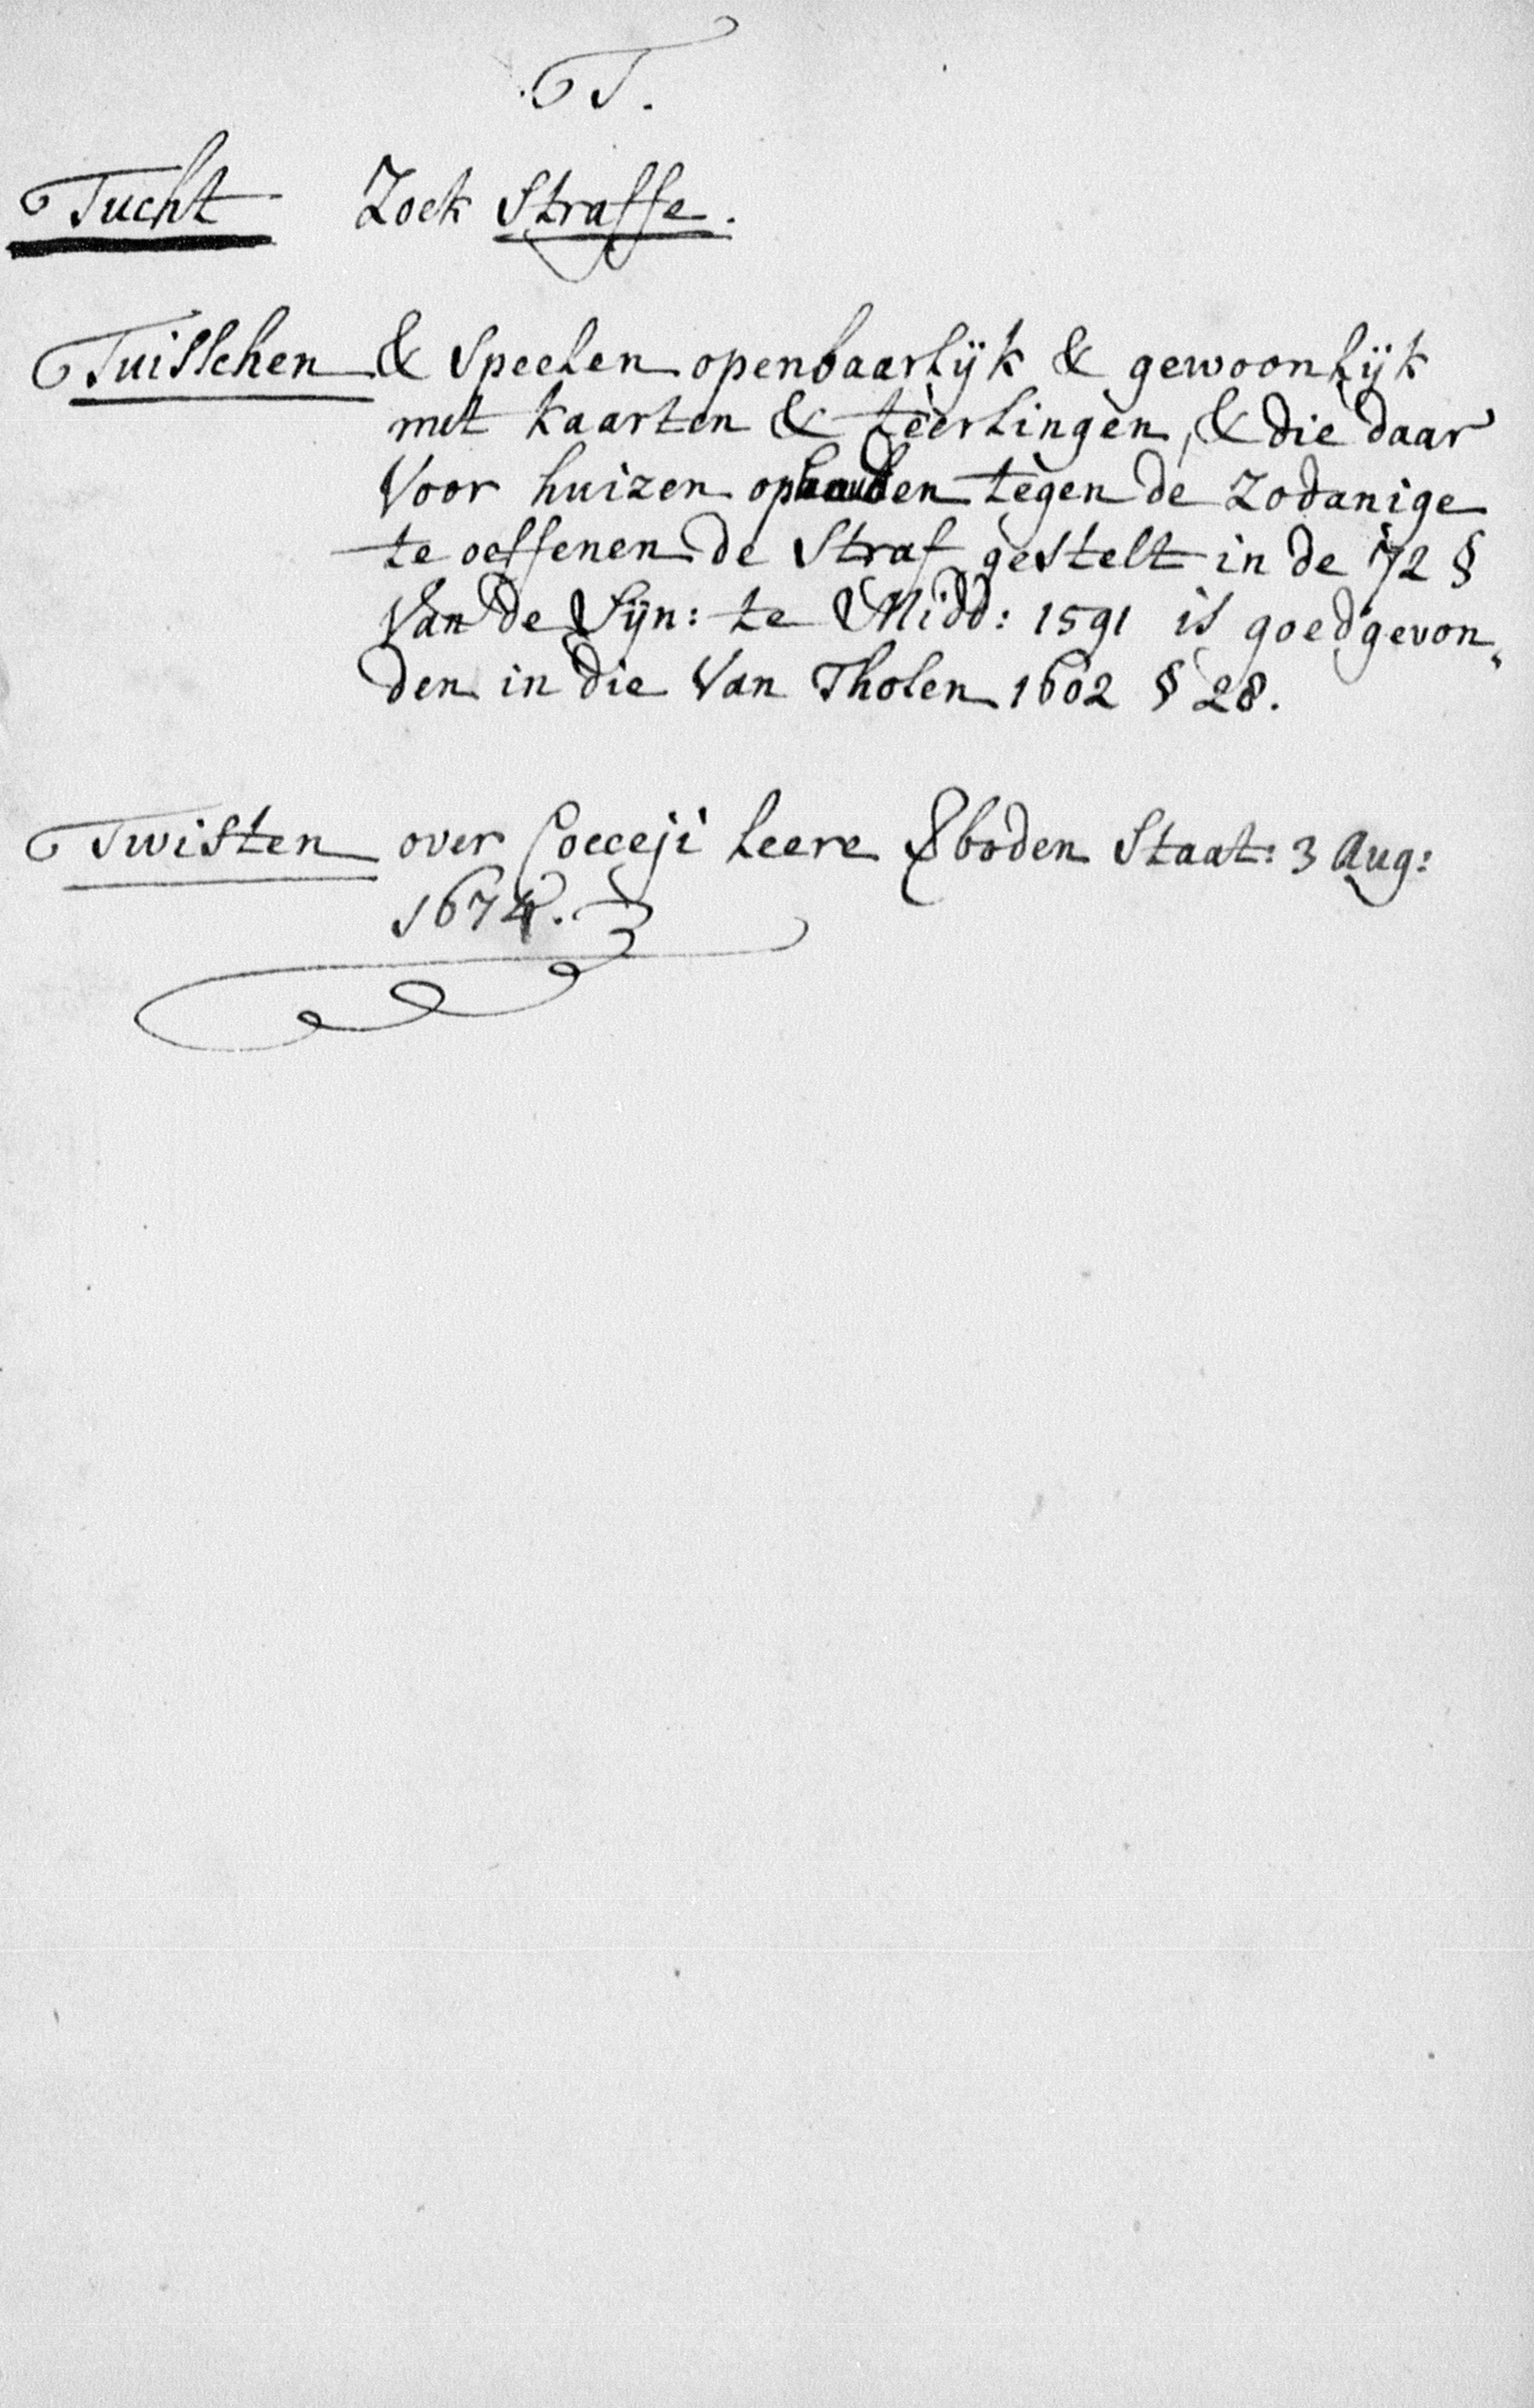 T.
Tucht Zoek Straffe.
Tuisschen & Speelen openbaarlijk & gewoonlijk
met kaarten & teerlingen, & die daar
Voor huizen ophouden tegen de Zodanige
te oeffenen de Straf gestelt in de 72 §
Van de Syn: te Midd: 1591 is goedgevon„
den in die Van Tholen 1602 § 28.
Twisten over Cocceji Leere Staat: 3 Aug:
1674.